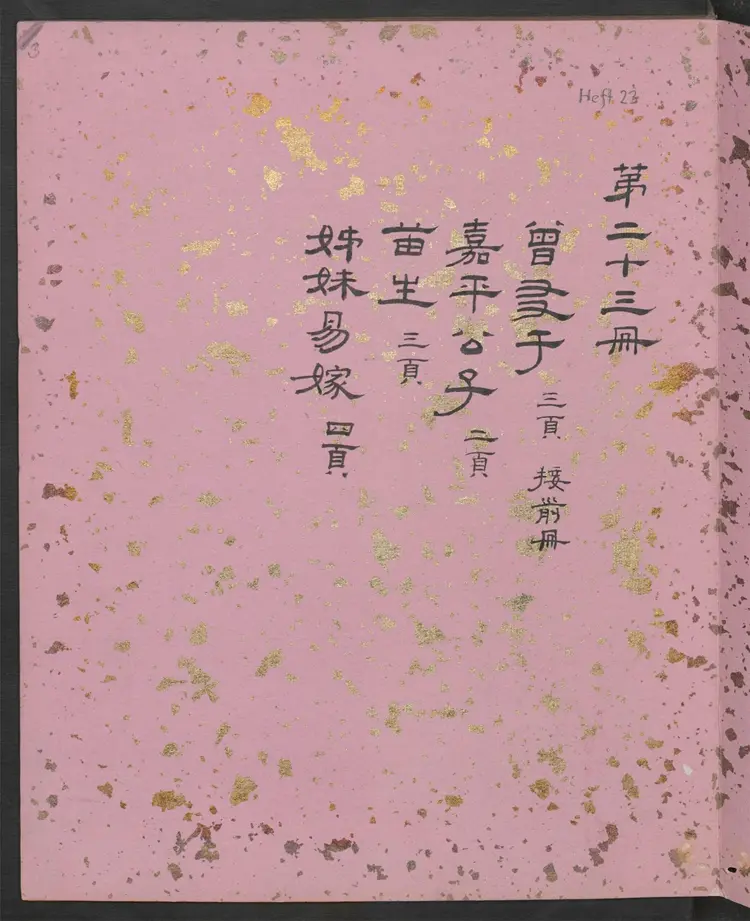 Heft 23
第二十三冊
曾友于 三頁 接前冊
嘉平公子 二頁
苗生 三頁
姊妹易嫁 四頁
3